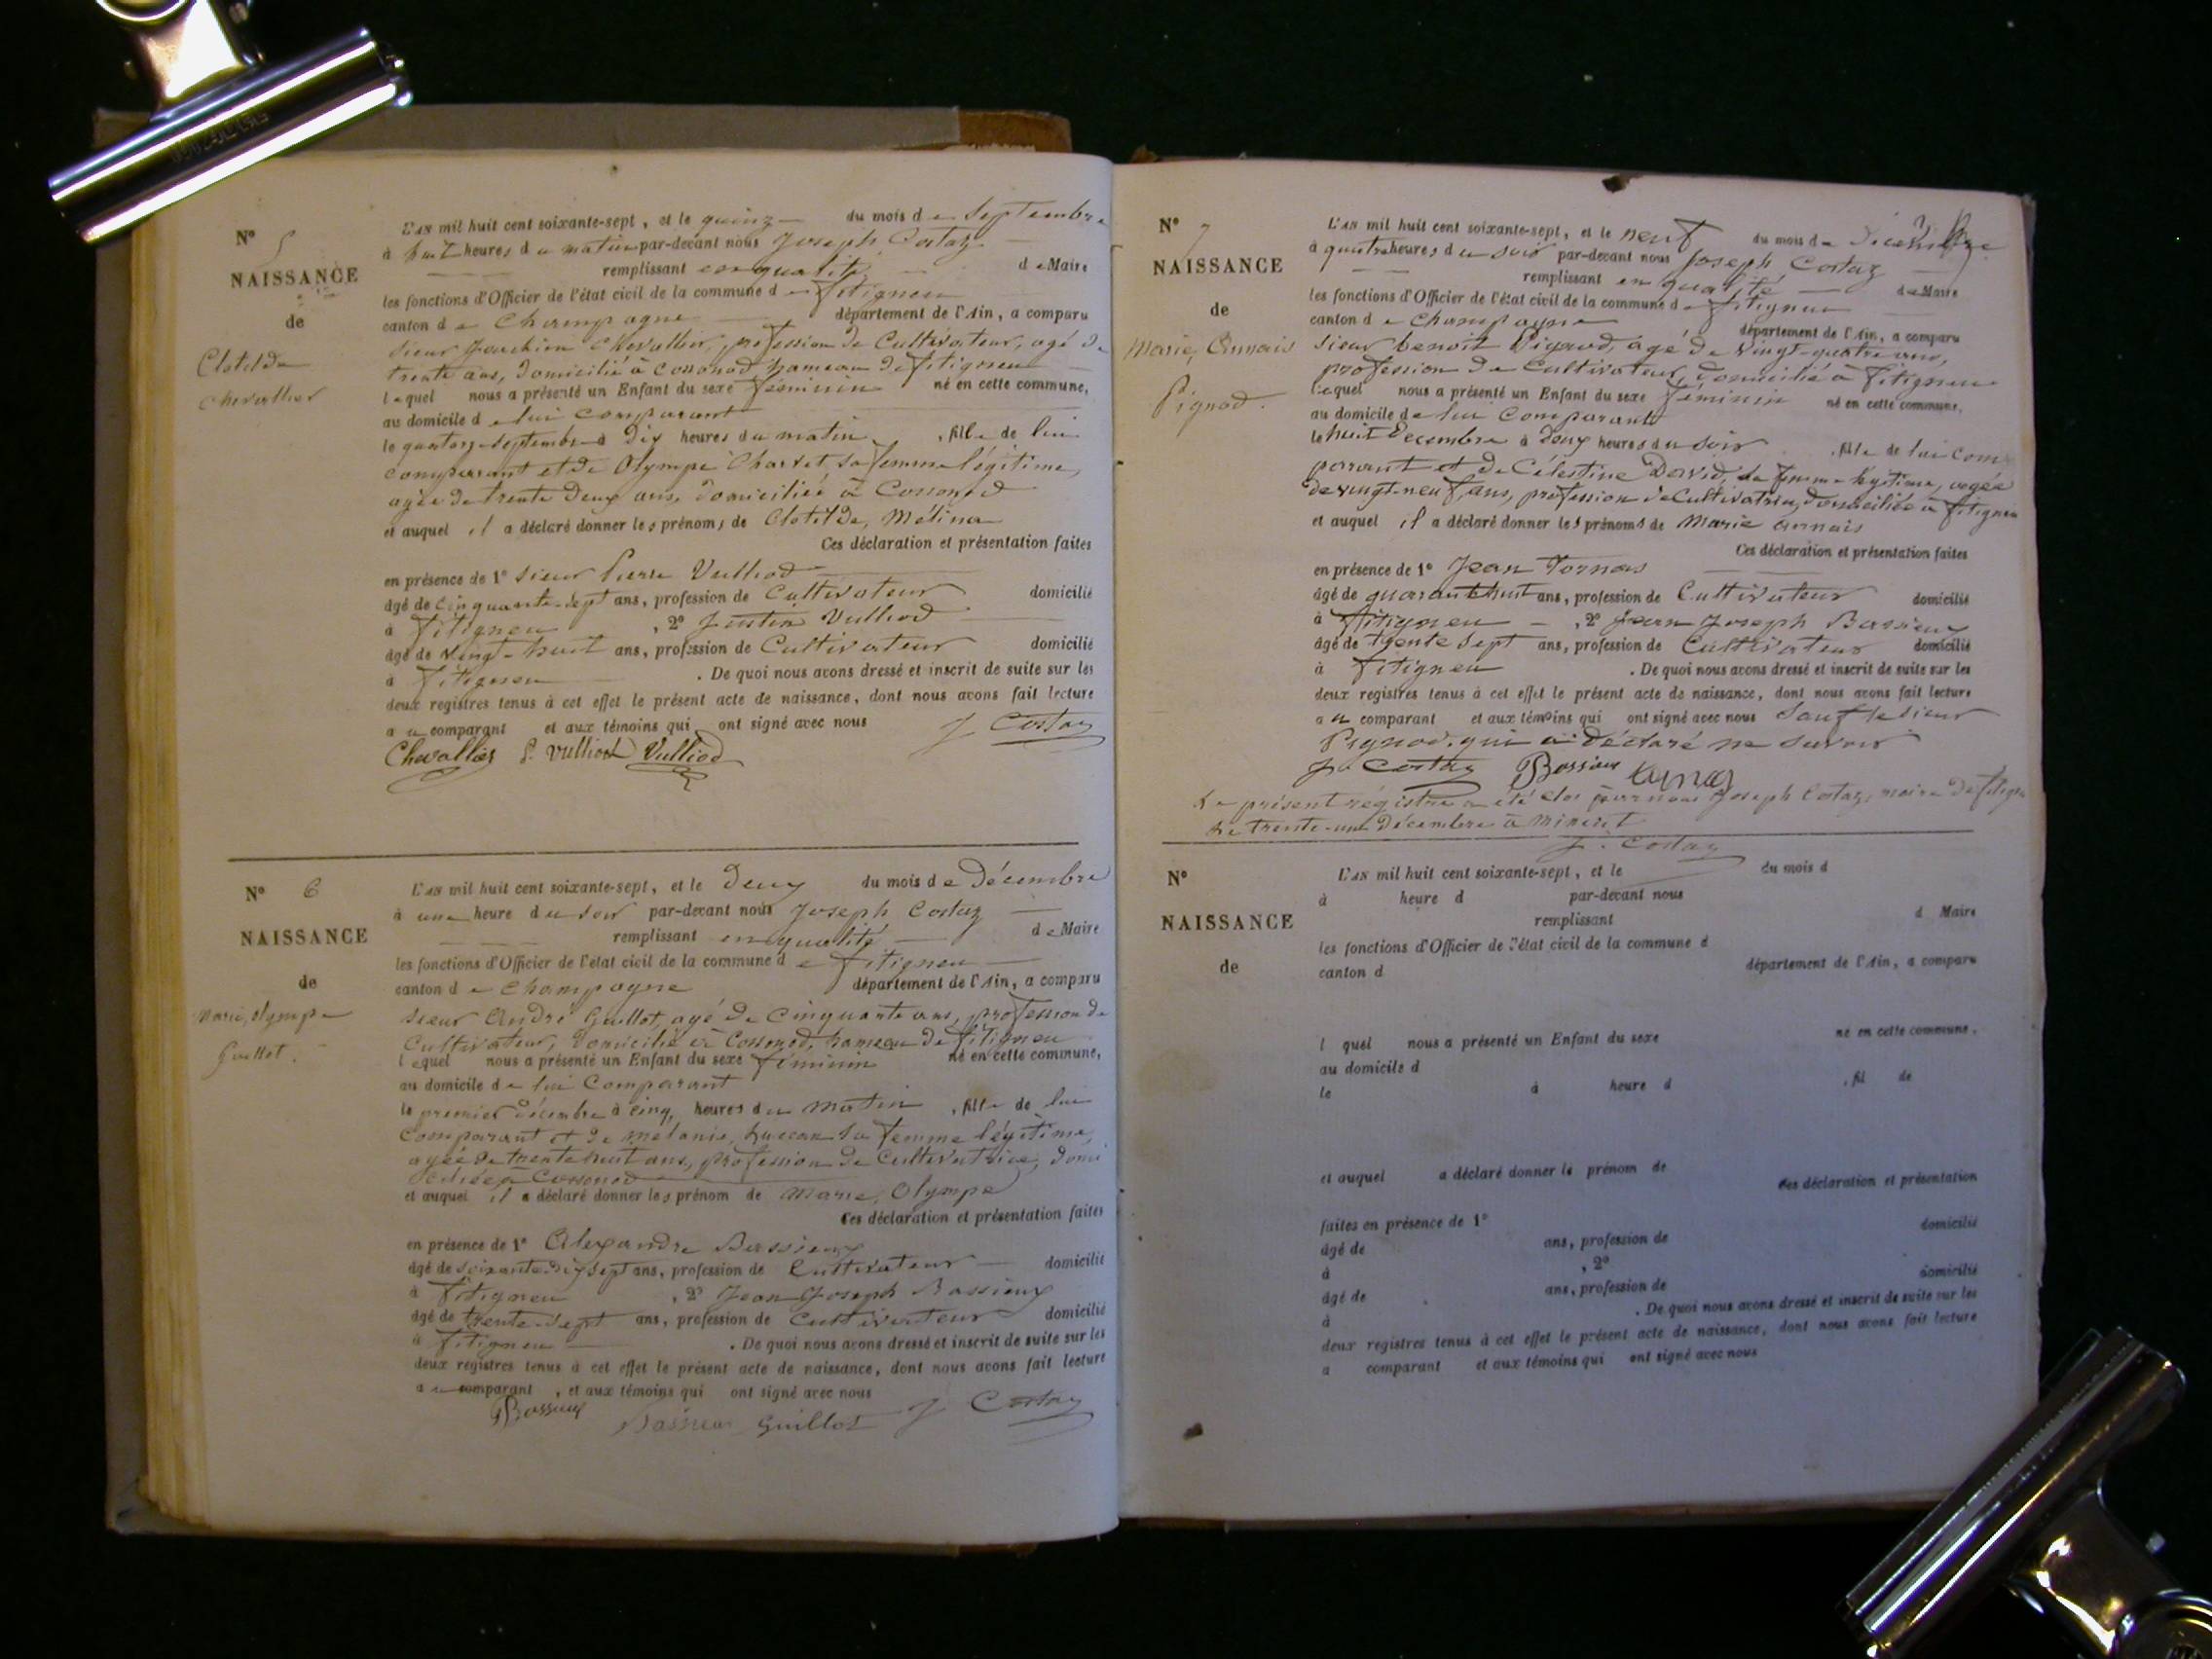 N° 5
NAISSANCE
de
Clotilde
Chevallier
L'AN mil huit cent soixante-sept, et le quinze du mois de Septembre
à huit heures du matin par-devant nous Joseph Costaz
remplissant en qualité de Maire
les fonctions d'Officier de l'état civil de la commune de Fitigneu
canton de Champagne département de l'Ain, a comparu
sieur Joachim Chevallier, profession de Cultivateur, agé de
trente ans, domicilié à Cossonod hameau de fitigneu
lequel nous a présenté un Enfant du sexe féminin né en cette commune,
au domicile de lui comparant
le quatorze septembre à dix heures du matin, fille de lui
comparant et de Olympe Charvet, sa femme légitime,
agée de trente deux ans, domiciliée à Cossonod
et auquel il a déclaré donner les prénoms de Clotilde, Mélina
Ces déclaration et présentation faites
en présence de 1° sieur Pierre Vulliod
âgé de cinquante-sept ans, profession de Cultivateur domicilié
à fitigneu, 2° Justin Vulliod
âgé de vingt-huit ans, profession de Cultivateur domicilié
à fitigneu. De quoi nous avons dressé et inscrit de suite sur les
deux registres tenus à cet effet le présent acte de naissance, dont nous avons fait lecture
au comparant et aux témoins qui ont signé avec nous J Costaz
Chevallier P. Vulliod Vulliod
N° 6
NAISSANCE
de
Marie, Olympe
Guillot.
L'AN mil huit cent soixante-sept, et le deux du mois de Décembre
à une heure du soir par-devant nous Joseph Costaz
remplissant en qualité de Maire
les fonctions d'Officier de l'état civil de la commune de fitigneu
canton de Champagne département de l'Ain, a comparu
sieur André Guillot, agé de cinquante ans, profession de
Cultivateur, domicilié à Cossonod, hameau de fitigneu
lequel nous a présenté un Enfant du sexe féminin né en cette commune,
au domicile de lui Comparant
le premier décembre à cinq heures du matin, fille de lui
comparant et de mélanie, sa femme légitime,
agée de trente huit ans, profession de Cultivatrice, domi
ciliée à Cossonod
et auquel il a déclaré donner les prénom de Marie, Olympe
Ces déclaration et présentation faites
en présence de 1° Alexandre Bassieux
âgé de soixante-dix sept ans, profession de Cultivateur domicilié
à fitigneu, 2° Jean Joseph Bassieux
âgé de trente-sept ans, profession de Cultivateur domicilié
à fitigneu. De quoi nous avons dressé et inscrit de suite sur les
deux registres tenus à cet effet le présent acte de naissance, dont nous avons fait lecture
au comparant, et aux témoins qui ont signé avec nous
Bassieux Bassieux Guillot J Costaz
N° 7
NAISSANCE
de
Marie, Annais
Pignod.
L'AN mil huit cent soixante-sept, et le neuf du mois de décembre
à quatre heures du soir par-devant nous Joseph Costaz
remplissant en qualité de Maire
les fonctions d'Officier de l'état civil de la commune de fitigneu
canton de Champagne département de l'Ain, a comparu
sieur benoit Pignod, agé de vingt-quatre ans,
profession de Cultivateur, domicilié à fitigneu
lequel nous a présenté un Enfant du sexe féminin né en cette commune,
au domicile de lui Comparant
le huit decembre à deux heures du soir, fille de lui com
parant et de Célestine David, sa femme légitime, agée
de vingt-neuf ans, profession de Cultivatrice, domiciliée à fitigneu
et auquel il a déclaré donner les prénoms de Marie annais
Ces déclaration et présentation faites
en présence de 1° Jean
âgé de quarante huit ans, profession de Cultivateur domicilié
à fitigneu, 2° Jean Joseph Bassieux
âgé de trente sept ans, profession de Cultivateur domicilié
à fitigneu. De quoi nous avons dressé et inscrit de suite sur les
deux registres tenus à cet effet le présent acte de naissance, dont nous avons fait lecture
au comparant et aux témoins qui ont signé avec nous Sauf le sieur
Pignod, qui a déclaré ne savoir
J. Costaz Bassieux
Le présent régistre a été clos par nous Joseph Costaz, maire de fitigneu
le trente-un Décembre à minuit
J. Costaz
N°
NAISSANCE
de
L'AN mil huit cent soixante-sept, et le du mois d
à heure d par-devant nous
remplissant d Maire
les fonctions d'Officier de l'état civil de la commune d
canton d département de l'Ain, a comparu
l quel nous a présenté un Enfant du sexe né en cette commune.
au domicile d
le à heure d , fil de
et auquel a déclaré donner le prénom de
Ces déclaration et présentation
faites en présence de 1°
âgé de ans, profession de domicilié
à , 2°
âgé de ans, profession de domicilié
à . De quoi nous avons dressé et inscrit de suite sur les
deux registres tenus à cet effet le présent acte de naissance, dont nous avons fait lecture
a comparant et aux témoins qui ont signé avec nous